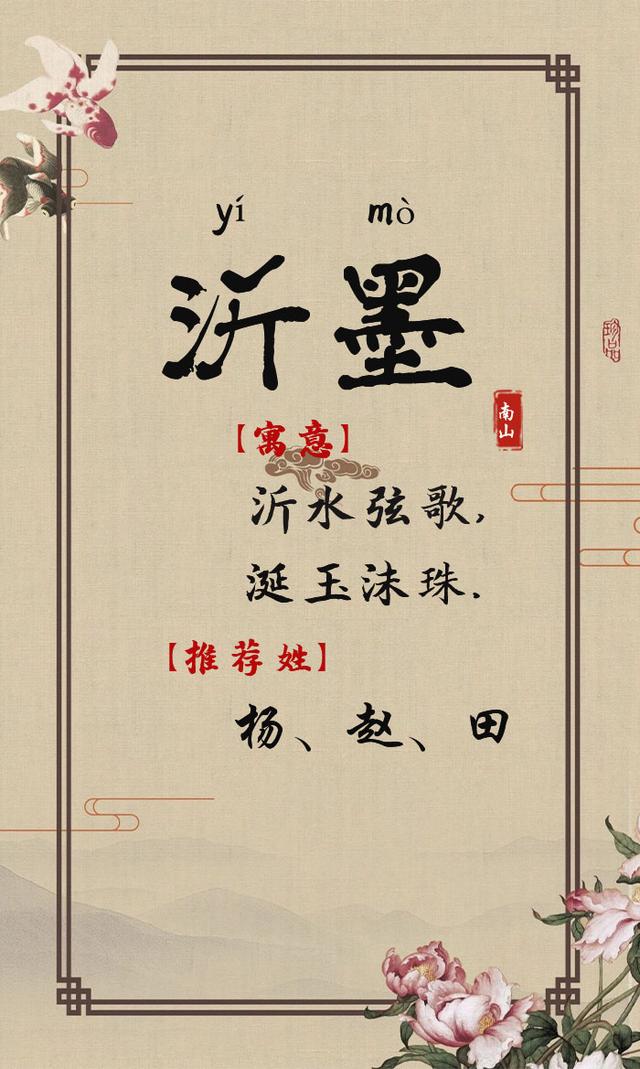 yí mò
沂墨
南山
【寓意】
沂水弦歌,
涎玉沫珠.
【推荐姓】
杨、赵、田
珍品